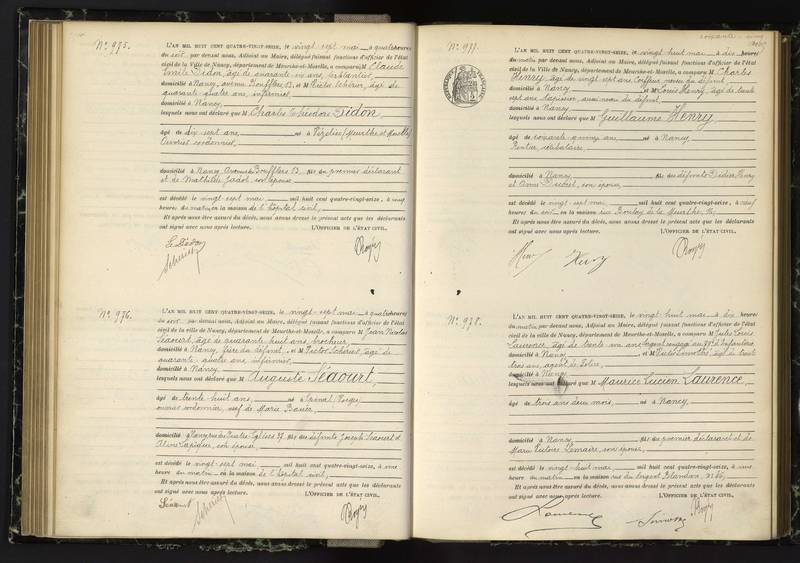 N° 975.
L'AN MIL HUIT CENT QUATRE-VINGT-SEIZE, le vingt sept mai à quatre heures
du soir, par devant nous, Adjoint au Maire, délégué faisant fonctions d'officier de l'état
civil de la Ville de Nancy, département de Meurthe-et-Moselle, a comparu M Claude
Emile Didon, âgé de quarante six ans,
domicilié à Nancy, avenue Boufflers 13, et M Victor Scherier, âgé de
quarante quatre ans, infirmier
domicilié à Nancy
lesquels nous ont déclaré que M Charles Théodore Didon
âgé de dix sept ans né à Vézelise (Meurthe et Moselle)
Ouvrier cordonnier,
domicilié à Nancy, Avenue de Boufflers 13, fils du premier déclarant
et de Mathilde Jadot, son épouse
est décédé le vingt sept mai mil huit cent quatre-vingt-seize, à cinq
heures du matin en la maison de l'hôpital civil,
Et après nous être assuré du décès, nous avons dressé le présent acte que les déclarants
ont signé avec nous après lecture. L'OFFICIER DE L'ÉTAT CIVIL,
N° 976.
L'AN MIL HUIT CENT QUATRE-VINGT-SEIZE, le vingt-sept mai à quatre heures
du soir par devant nous, Adjoint au Maire, délégué faisant fonctions d'officier de l'état
civil de la ville de Nancy, département de Meurthe-et-Moselle, a comparu M Jean Nicolas
Séaourt, âgé de quarante huit ans, brocheur,
domicilié à Nancy, frère du défunt, et M Victor Scherier, âgé de
quarante quatre ans, infirmier
domicilié à Nancy
lesquels nous ont déclaré que M Auguste Séaourt,
âgé de trente huit ans, né à Epinal (Vosges)
ouvrier cordonnier, veuf de Marie Bauer,
domicilié à Nancy, rue des Quatre Eglises 37 fils des défunts Joseph Séaourt et
son épouse,
est décédé le vingt sept mai mil huit cent quatre-vingt-seize, à une
heure du matin en la maison de l'hôpital civil,
Et après nous être assuré du décès, nous avons dressé le présent acte que les déclarants
ont signé avec nous après lecture. L'OFFICIER DE L'ÉTAT CIVIL,
N° 977.
L'AN MIL HUIT CENT QUATRE-VINGT-SEIZE, le vingt huit mai à dix heures
du matin, par devant nous, Adjoint au Maire, délégué faisant fonctions d'officier de l'état
civil de la Ville de Nancy, département de Meurthe-et-Moselle, a comparu M Charles
Henry, âgé de vingt sept ans Coiffeur neveu du défunt,
domicilié à Nancy et M Louis Henry, âgé de trente
sept ans tapissier, aussi neveu du défunt,
domicilié à Nancy
lesquels nous ont déclaré que M Guillaume Henry,
âgé de soixante quinze ans, né à Nancy,
Rentier, célibataire,
domicilié à Nancy fils des défunts Didier Henry
et Anne son épouse,
est décédé le vingt sept mai mil huit cent quatre-vingt-seize, à neuf
heures du soir en la maison rue Boulay de la Meurthe,
Et après nous être assuré du décès, nous avons dressé le présent acte que les déclarants
ont signé avec nous après lecture. L'OFFICIER DE L'ÉTAT CIVIL,
Henry
N° 978.
L'AN MIL HUIT CENT QUATRE-VINGT-SEIZE, le vingt huit mai à dix heures
du matin, par devant nous, Adjoint au Maire, délégué faisant fonctions d'officier de l'état
civil de la ville de Nancy, département de Meurthe-et-Moselle, a comparu M Jules Louis
Laurence, âgé de trente un ans Sergent rengagé au d'Infanterie,
domicilié à Nancy et M Victor âgé de trente
trois ans, agent de Police,
domicilié à Nancy
lesquels nous ont déclaré que M Maurice Lucien Laurence,
âgé de trois ans deux mois, né à Nancy,
domicilié à Nancy fils du premier déclarant et de
Marie Victoire Lemaire, son épouse,
est décédé le vingt huit mai mil huit cent quatre-vingt-seize, à une
heure du matin en la maison rue du Sergent Blandan,
Et après nous être assuré du décès, nous avons dressé le présent acte que les déclarants
ont signé avec nous après lecture. L'OFFICIER DE L'ÉTAT CIVIL,
Laurence